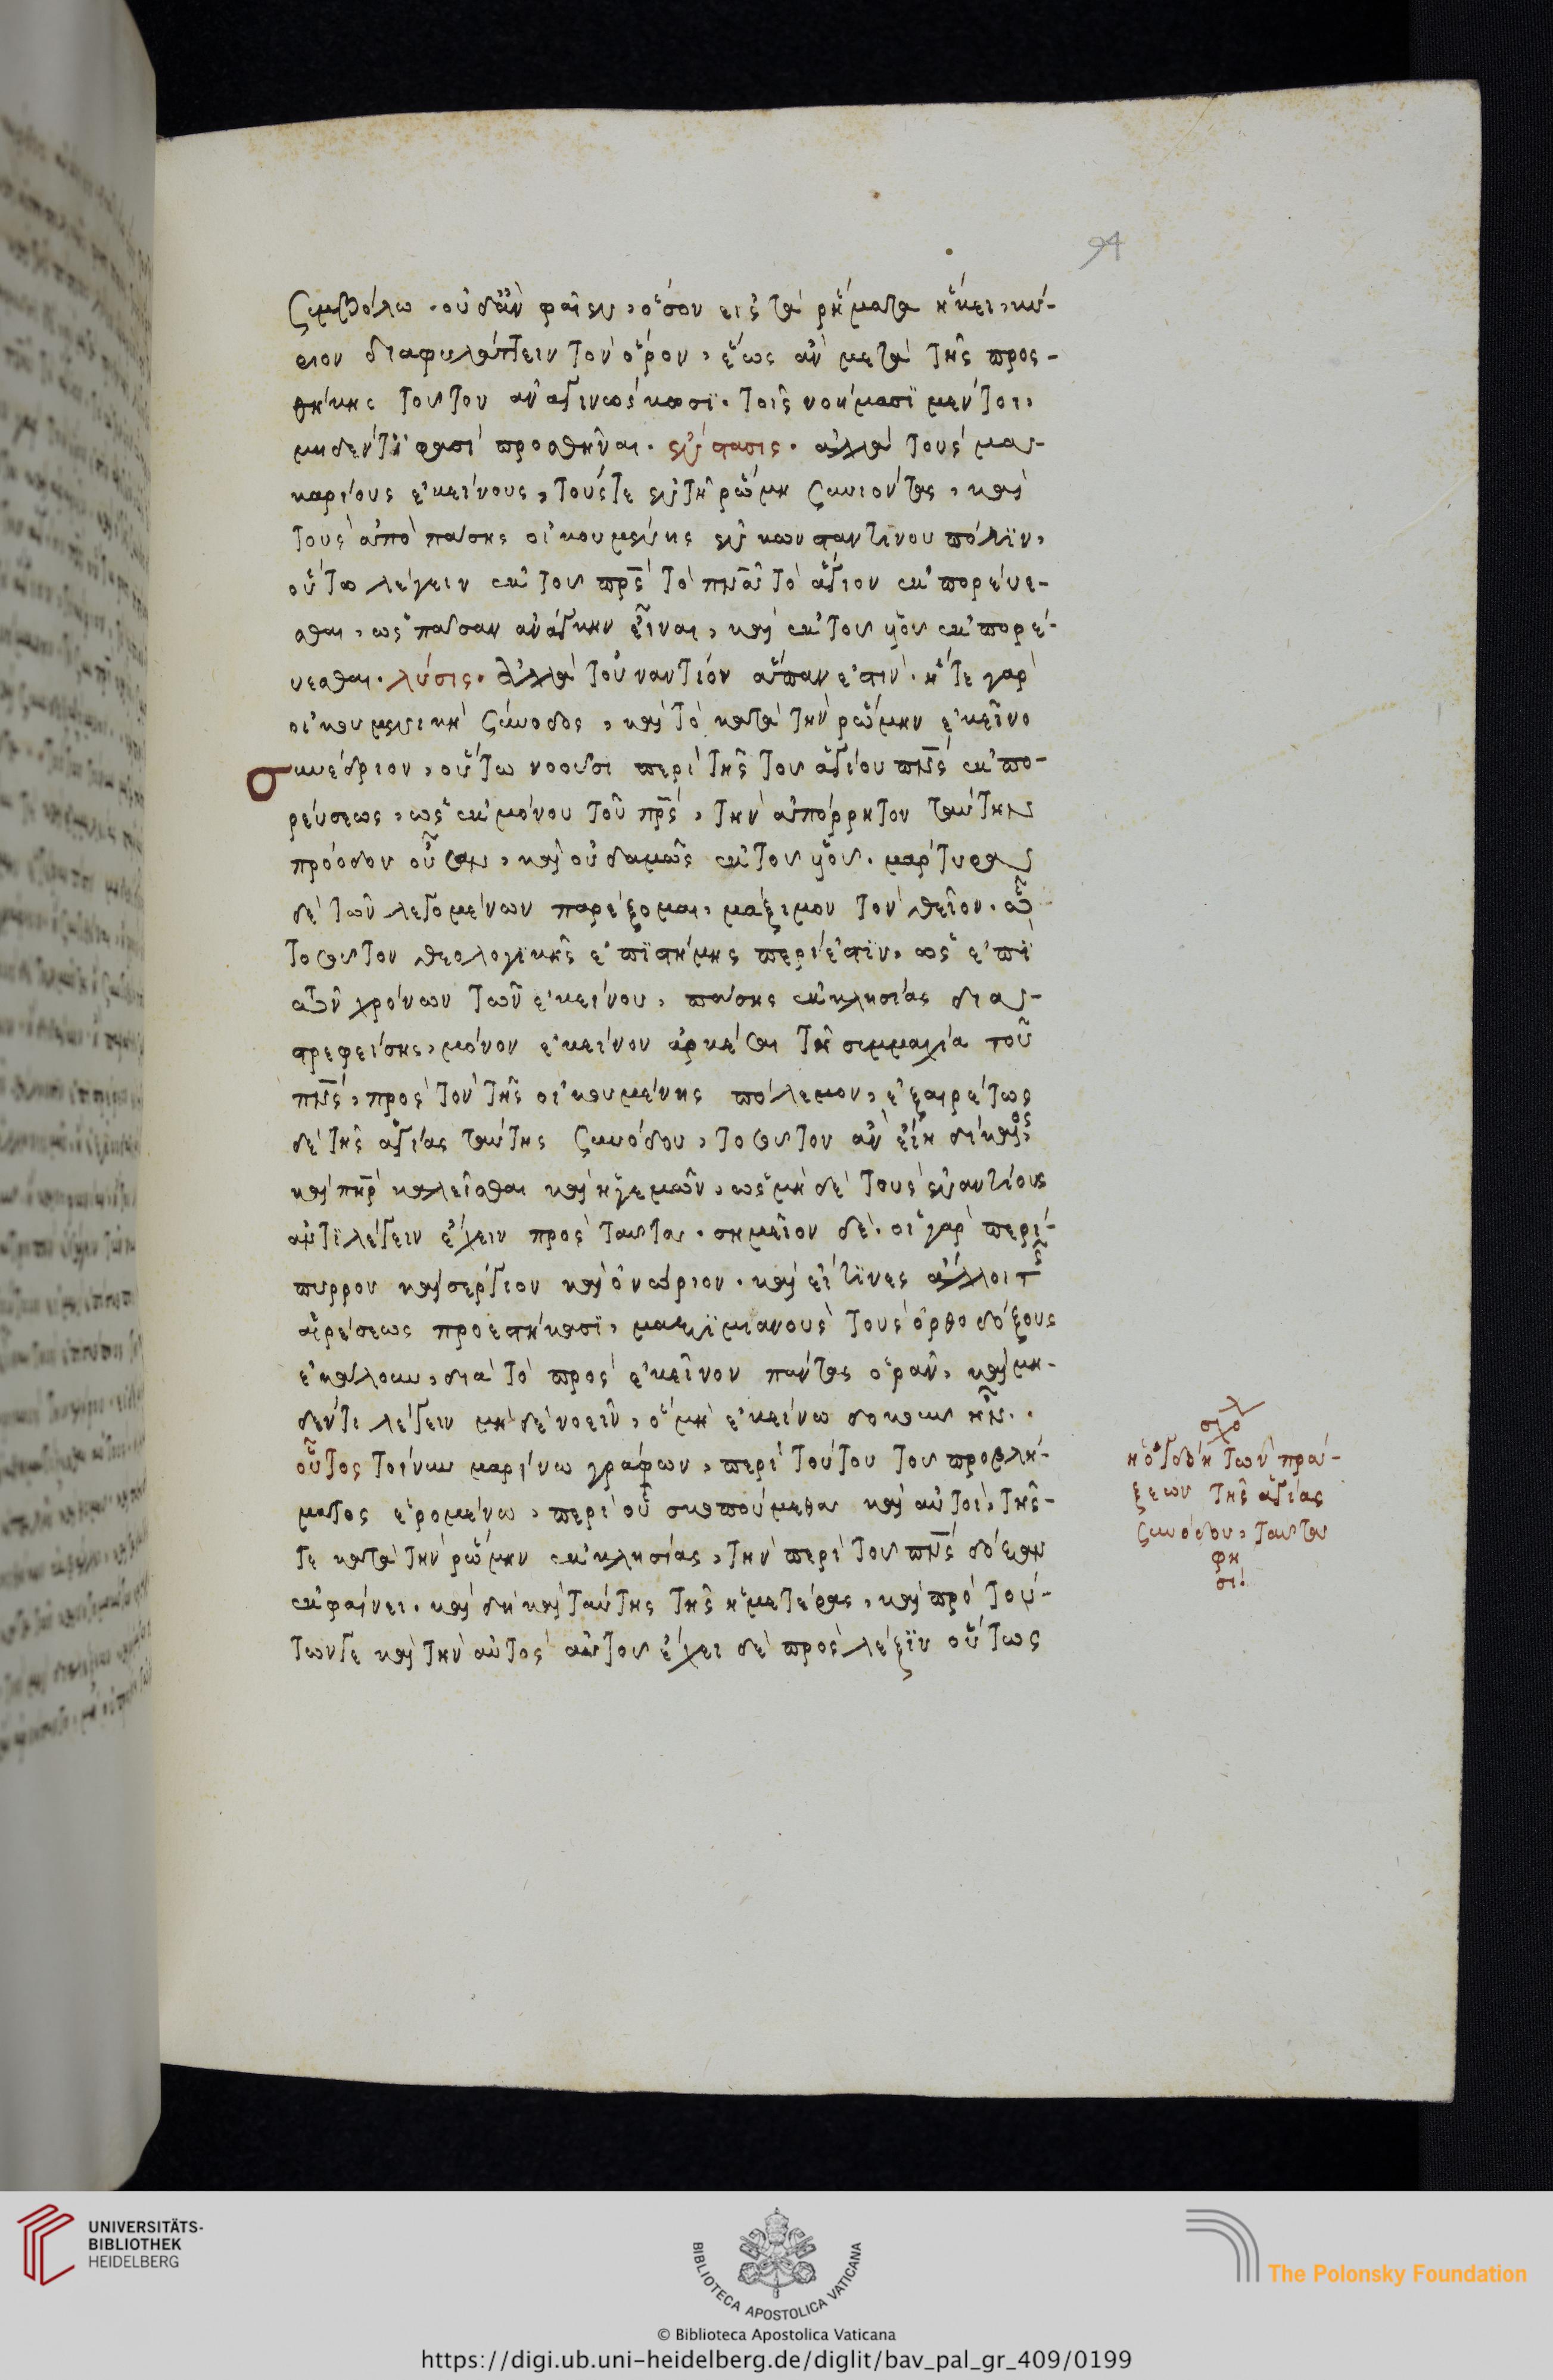 94
συμβόλω. οὐδ' ἂν φαῖεν, ὅσον εἰς τὰ ρήματα ἥκει, κύ-
ριον διαφυλάττειν τὸν ὅρον, ἕως ἂν μετὰ τῆς προσ-
θήκης τοῦτον ἀναγινώσκωσϊ. τοῖς νοήμασϊ μέντοι,
μηδέν τϊ φασὶ προσθῆναι. ἔνστασις. ἀλλὰ τοὺς μα-
καρίους ἐκείνους, τούς τε ἐν τῆ ρώμη συνιόντας, καὶ
τοὺς ἀπὸ πάσης οἰκουμένης ἐν κωνσταντίνου πόλϊν,
οὕτω λέγειν ἐκ τοῦ πρς τὸ πνᾶ τὸ ἅγιον ἐκπορεύε-
σθαι, ὡς πᾶσαν ἀνάγκην εἶναι, καὶ ἐκ τοῦ υἱοῦ ἐκπορεύ-
εσθαι. λύσις. ἀλλὰ τοὐναντίον ἅπαν ἐστίν. ἥ τε γὰρ
οἰκουμενικὴ σύνοδος, καὶ τὸ κατὰ τὴν ρώμην ἐκεῖνο
συνέδριον, οὕτω νοοῦσι περὶ τῆς τοῦ ἁγίου πνς ἐκπο-
ρεύσεως, ὡς ἐκ μόνου τοῦ πρς, τὴν ἀπόρρητον ταύτην
πρόοδον οὖσαν, καὶ οὐδαμῶς ἐκ τοῦ υἱοῦ. μάρτυρα
δὲ τῶν λεγομένων παρέξομαι, μάξιμον τὸν θεῖον. ὧ
τοσοῦτον θεολογϊκῆς ἐπϊστήμης περιέστϊν, ὡς ἐπϊ
τῶν χρόνων τῶν ἐκείνου, πάσης ἐκκλησίας δια-
στρεφείσης, μόνον ἐκεῖνον ἀρκέσαι τῆ συμμαχία τοῦ
πνς, πρὸς τὸν τῆς οἰκουμένης πόλεμον, ἐξαιρέτως
δὲ τῆς ἁγίας ταύτης συνόδου, τοσοῦτον ἂν εἴη δίκαιος
καὶ πηρ καλεῖσθαι καὶ ἡγεμὼν, ὡς μὴ δὲ τοὺς ἐναντίους
ἀντϊλέγειν ἔχειν πρὸς ταῦτα. σημεῖον δέ. οἱ γὰρ περὶ
πύρρον καὶ σέργιον καὶ ὀνώριον. καὶ εἴ τϊνες ἄλλοι τῆς
αἱρέσεως προεστήκασϊ, μαξϊμιανοὺς τοὺς ὀρθοδόξους
ἐκάλουν, διὰ τὸ πρὸς ἐκεῖνον πάντας ὁρᾶν, καὶ μη-
δέν τι λέγειν μὴ δὲ νοεῖν, ὃ μὴ ἐκείνω δοκοῦν ἦν.
οὗτος τοίνυν μαρίνω γράφων, περὶ τούτου τοῦ προβλή-
ματος ἐρομένω, περὶ οὗ σκοπούμεθα καὶ αὐτοὶ, τῆς
τε κατὰ τὴν ρώμην ἐκκλησίας, τὴν περὶ τοῦ πνς δόξαν
ἐκφαίνει. καὶ δὴ καὶ ταύτης τῆς ἡμετέρας, καὶ πρὸ τού-
των γε καὶ τὴν αὐτὸς αὐτοῦ ἔχει δὲ πρὸς λέξϊν οὕτως
σχό
ἡ ὀγδόη τῶν πρά-
ξεων τῆς ἁγίας
συνόδου, ταῦτα
φη
σι
UNIVERSITÄTS-
BIBLIOTHEK
HEIDELBERG
BIBLIOTECA APOSTOLICA VATICANA
The Polonsky Foundation
© Biblioteca Apostolica Vaticana
https://digi.ub.uni-heidelberg.de/diglit/bav_pal_gr_409/0199